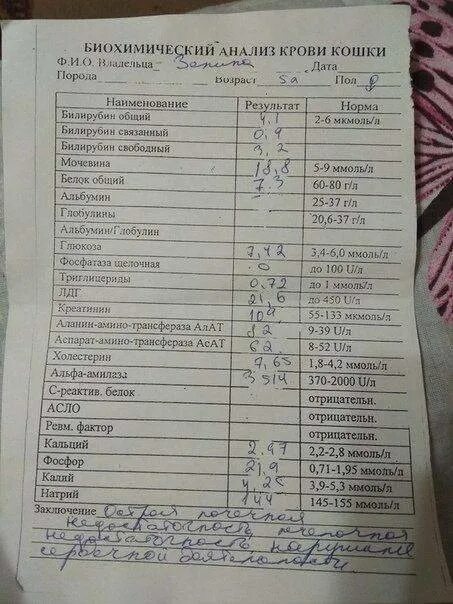 БИОХИМИЧЕСКИЙ АНАЛИЗ КРОВИ КОШКИ
Ф.И.О. Владельца Дата
Порода Возраст 5л Пол
Наименование Результат Норма
Билирубин общий 4,1 2-6 мкмоль/л
Билирубин связанный 0,9
Билирубин свободный 3,2
Мочевина 18,8 5-9 ммоль/л
Белок общий 73 60-80 г/л
Альбумин 25-37 г/л
Глобулины 20,6-37 г/л
Альбумин/Глобулин
Глюкоза 7,42 3,4-6,0 ммоль/л
Фосфатаза щелочная 0 до 100 U/л
Триглицериды 0,72 до 1 ммоль/л
ЛДГ до 450 U/л
Креатинин 55-133 мкмоль/л
Аланин-амино-трансфераза АлАТ 9-39 U/л
Аспарат-амино-трансфераза АсАТ 62 8-52 U/л
Холестерин 7,65 1,8-4,2 ммоль/л
Альфа-амилаза 3514 370-2000 U/л
С-реактив. белок отрицательн.
АСЛО отрицательн.
Ревм. фактор отрицательн.
Кальций 2,2-2,8 ммоль/л
Фосфор 21,9 0,71-1,95 ммоль/л
Калий 4,25 3,9-5,3 ммоль/л
Натрий 144 145-155 ммоль/л
Заключение Острая почечная
недостаточность печеночная
недостаточность нарушение
сердечной деятельности